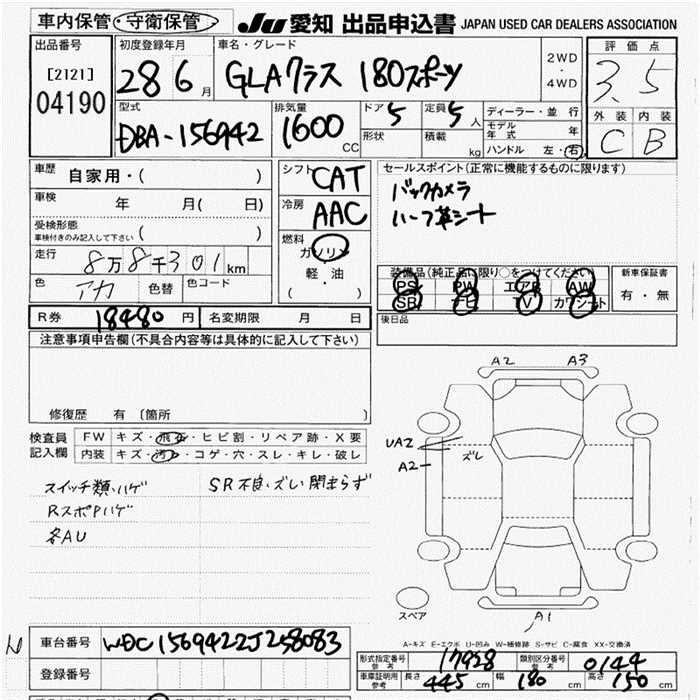 車内保管・守衛保管
JU 愛知 出品申込書 JAPAN USED CAR DEALERS ASSOCIATION
出品番号
[2121]
04190
初度登録年月
28 6月
車名・グレード
GLAクラス 180スポーツ
2WD
・
4WD
評価点
3.5
外装 内装
C B
型式
DBA-156942
排気量
1600 CC
ドア 5
形状
定員 5人
積載 kg
ディーラー・並行
モデル年式 年
ハンドル 左・右
車歴 自家用・( )
車検 年 月( 日)
受検形態
車検付きのみ記入して下さい ( )
走行 8万8千301km
色 アカ 色替 色コード
シフト CAT
冷房 AAC
燃料
ガソリン
軽・油
( ・ )
セールスポイント(正常に機能するものに限ります)
バックカメラ
ハーフ革シート
装備品(純正品に限り○をつけてください)
PS PW エアB AW
SR ナビ TV カワシート
新車保証書
有・無
R券 18480円 名変期限 月 日
後日品
注意事項申告欄(不具合内容等は具体的に記入して下さい)
修復歴 有 〔箇所 〕
検査員記入欄
FW キズ・飛石・ヒビ割・リペア跡・X要
内装 キズ・汚れ・コゲ・穴・スレ・キレ・破レ
スイッチ類ハゲ SR不良・ズレ 閉まらず
RスポPハゲ
各AU
A2 A3
UA2
A2
ズレ
スペア
A1
A-キズ E-エクボ U-凹み W-補修跡 S-サビ C-腐食 XX-交換済
車台番号 WDC1569422J258083
登録番号
形式指定番号
参考 17928
類別区分番号
参考 0144
車庫証明用
参考 長さ 445cm 幅 180cm 高さ 150cm